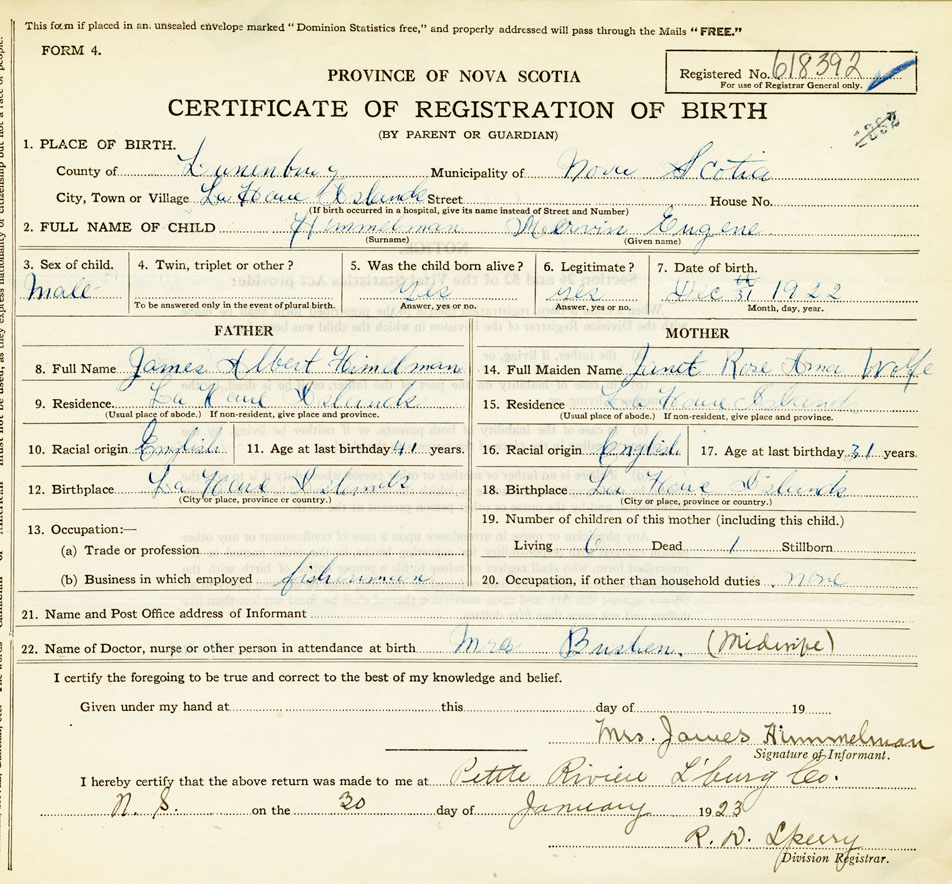 This form if placed in an unsealed envelope marked "Dominion Statistics free," and properly addressed will pass through the Mails "FREE."
FORM 4.
Registered No. 618392
For use of Registrar General only.
PROVINCE OF NOVA SCOTIA
CERTIFICATE OF REGISTRATION OF BIRTH
(BY PARENT OR GUARDIAN)
1. PLACE OF BIRTH.
County of Lunenburg Municipality of Nova Scotia
City, Town or Village La Have Islands Street House No.
(If birth occurred in a hospital, give its name instead of Street and Number)
2. FULL NAME OF CHILD Himmelman Mervin Eugene
(Surname) (Given name)
3. Sex of child. 4. Twin, triplet or other? 5. Was the child born alive? 6. Legitimate? 7. Date of birth.
Male yes yes Dec 31 1922
To be answered only in the event of plural birth. Answer, yes or no. Answer, yes or no. Month, day, year.
FATHER MOTHER
8. Full Name James Albert Himelman 14. Full Maiden Name Janet Rose Wolfe
9. Residence. La Have Islands 15. Residence La Have Islands
(Usual place of abode.) If non-resident, give place and province. (Usual place of abode.) If non-resident, give place and province.
10. Racial origin English 11. Age at last birthday 41 years. 16. Racial origin English 17. Age at last birthday 31 years.
12. Birthplace La Have Islands 18. Birthplace La Have Islands
(City or place, province or country.) (City or place, province or country.)
13. Occupation:— 19. Number of children of this mother (including this child.)
(a) Trade or profession Living 6 Dead 1 Stillborn
(b) Business in which employed fisherman 20. Occupation, if other than household duties none
21. Name and Post Office address of Informant
22. Name of Doctor, nurse or other person in attendance at birth Mrs Bushen. (Midwife)
I certify the foregoing to be true and correct to the best of my knowledge and belief.
Given under my hand at this day of 19
Mrs. James Himmelman
Signature of Informant.
I hereby certify that the above return was made to me at Petite Riviere L'burg Co.
N. S. on the 30 day of January 1923
R. D. Sperry
Division Registrar.